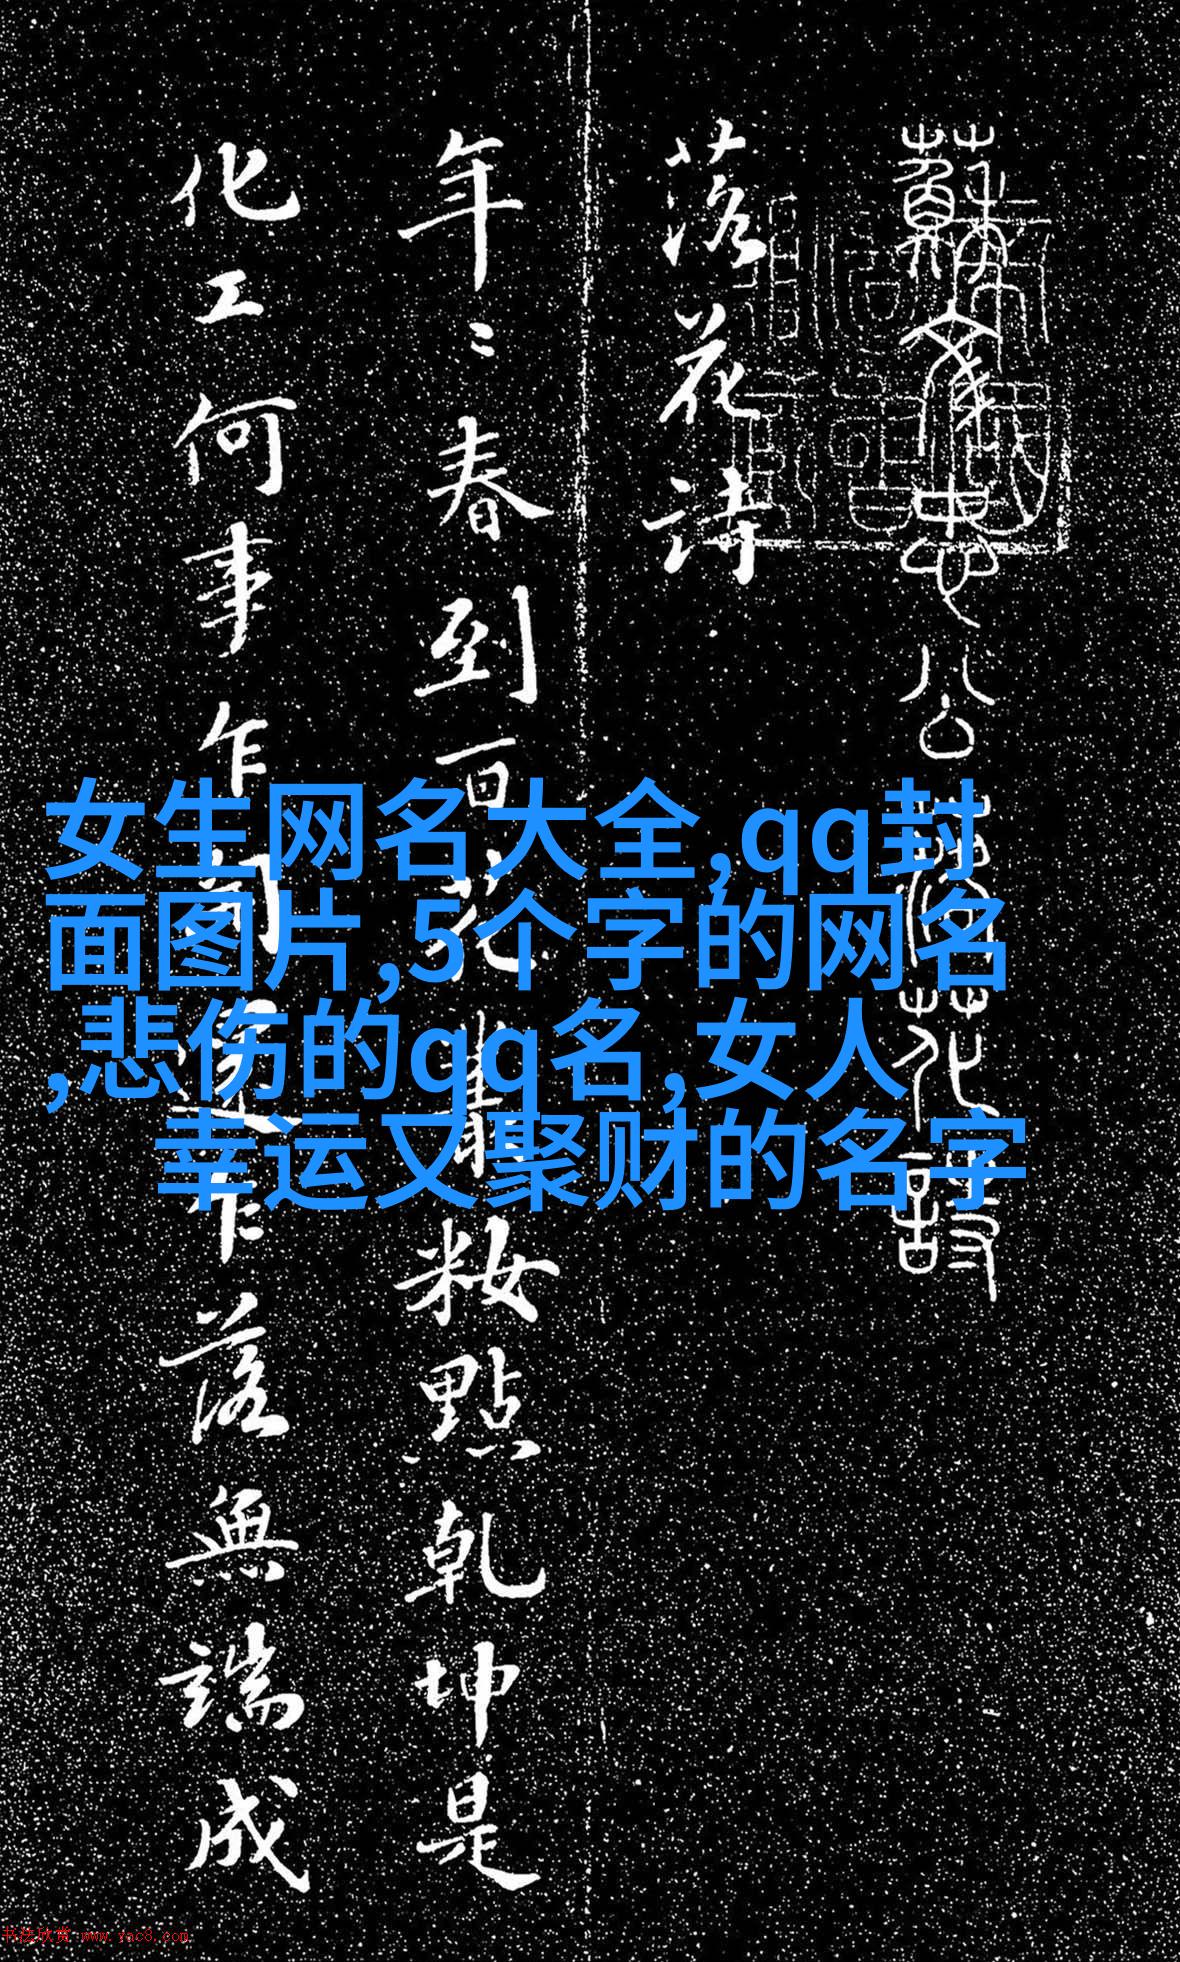 蘇文忠公落花詩
落花詩
年〻春到百花叢粧點乾坤是
化工何事乍開還乍落無端成
女生网名大全,qq封
面图片,5个字的网名
,悲伤的qq名,女人
幸运又聚财的名字
书法欣赏 www.yac8.com